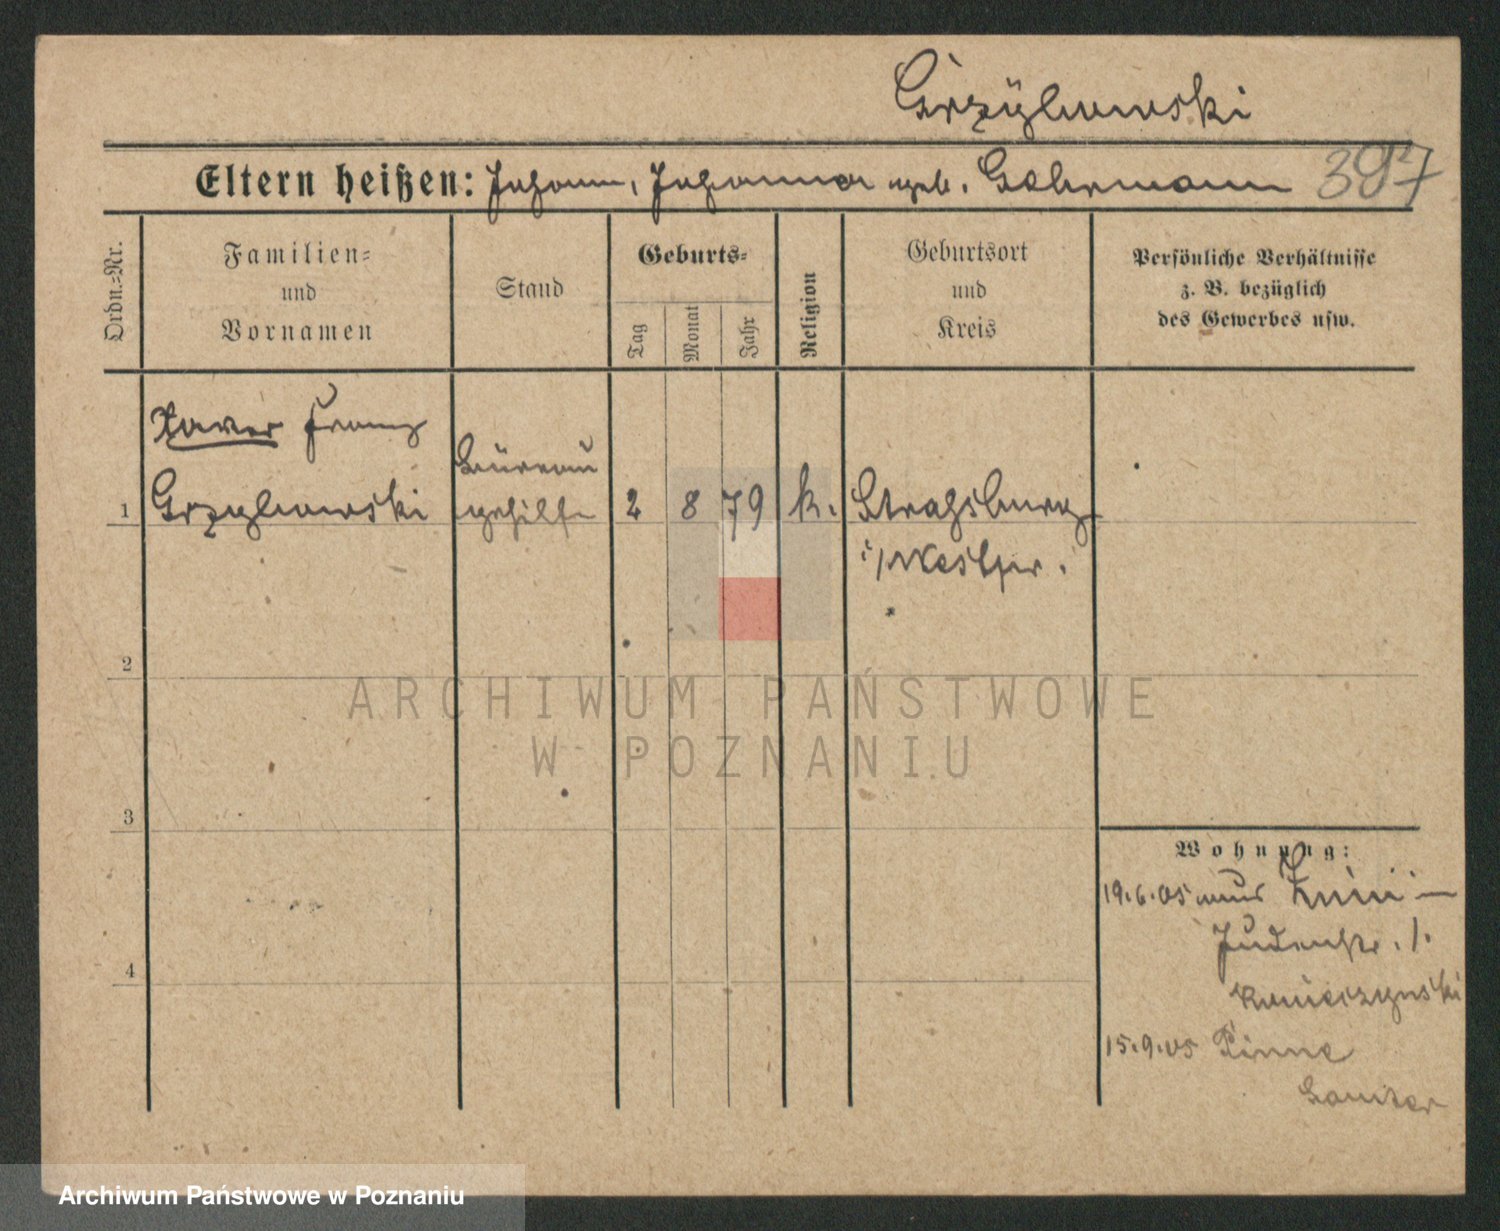 Grzÿbowski
Eltern heißen: Johann, Johanna geb. Gehrmann 397
Ordn.-Nr.
Familien-
und
Vornamen
Stand
Geburts-
Tag
Monat
Jahr
Religion
Geburtsort
und
Kreis
Persönliche Verhältnisse
z. B. bezüglich
des Gewerbes usw.
Xaver Franz
Büreau
1 Grzybowski gehilfe 2 8 79 k. Strasburg
i/Westpr.
2
ARCHIWUM PAŃSTWOWE
W POZNANIU
3
Wohnung:
19.6.05 aus Znin
Judenstr. 1.
15.9.05 Pinne
Samter
4
Archiwum Państwowe w Poznaniu